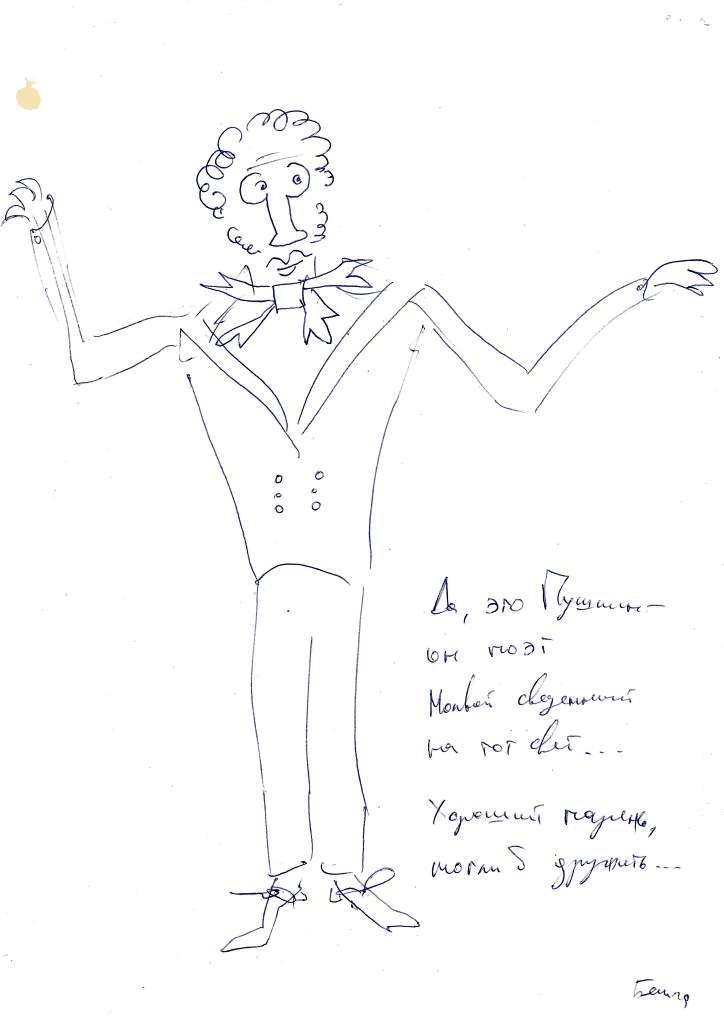 Да, это Пушкин—
он поэт
Молвой сведенный
на тот свет...
Хороший парень,
могли б дружить...